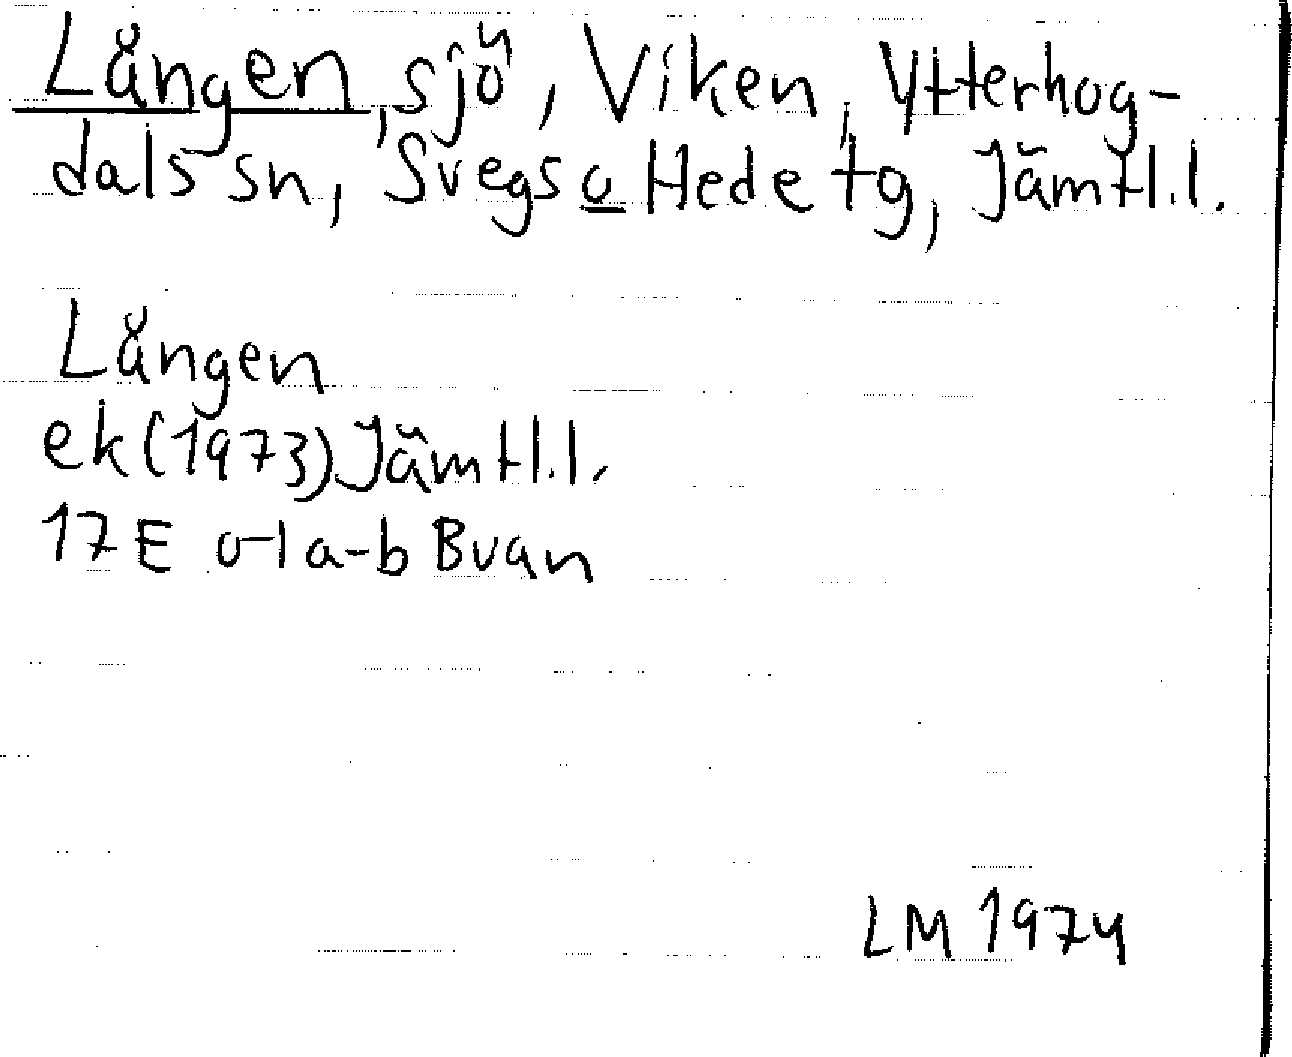 Lången, sjö, Viken, Ytterhog-
dals sn, Svegs o Hede tg, Jämtl.l.
Lången
ek(1973) Jämtl.l.
17E 0-1a-b Buan
LM 1974